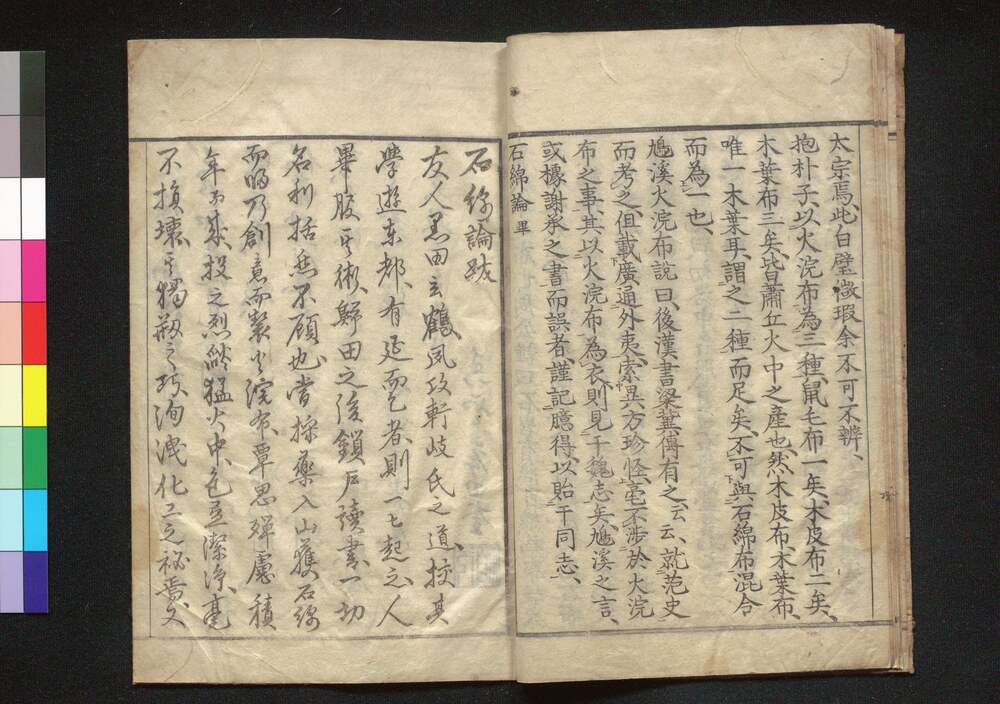 太宗焉、此白璧微瑕、余不可不辨、
抱朴子、以火浣布為三種、鼠毛布一矣、木皮布二矣、
木葉布三矣、皆蕭丘火中之產也、然木皮布、木葉布、
唯一木葉耳、謂之二種而足矣、不可與石綿布混合
而為一也、
鳩溪火浣布說曰、後漢書梁冀傳有之云云、就范史
而考之、但載廣通外夷、索異方珍怪、毫不涉於火浣
布之事、其以火浣布為衣、則見于魏志矣、鳩溪之言、
或據謝承之書而誤者、謹記臆得、以貽于同志、
石綿論畢
石綿論跋
友人黑田玄鶴、夙攻軒岐氏之道、挍其
學遊東都、有延而乞者、則一七起之、人
畢服其術、歸田之後、鎖戶讀書、一切
名利括盡不顧也、嘗採藥入山、獲石綿
而歸乃創意而製火浣布、覃思殫慮、積
年而成、投之烈燄猛火中、色益潔淨、毫
不損壞、其獨創之巧、洵洩化工之祕